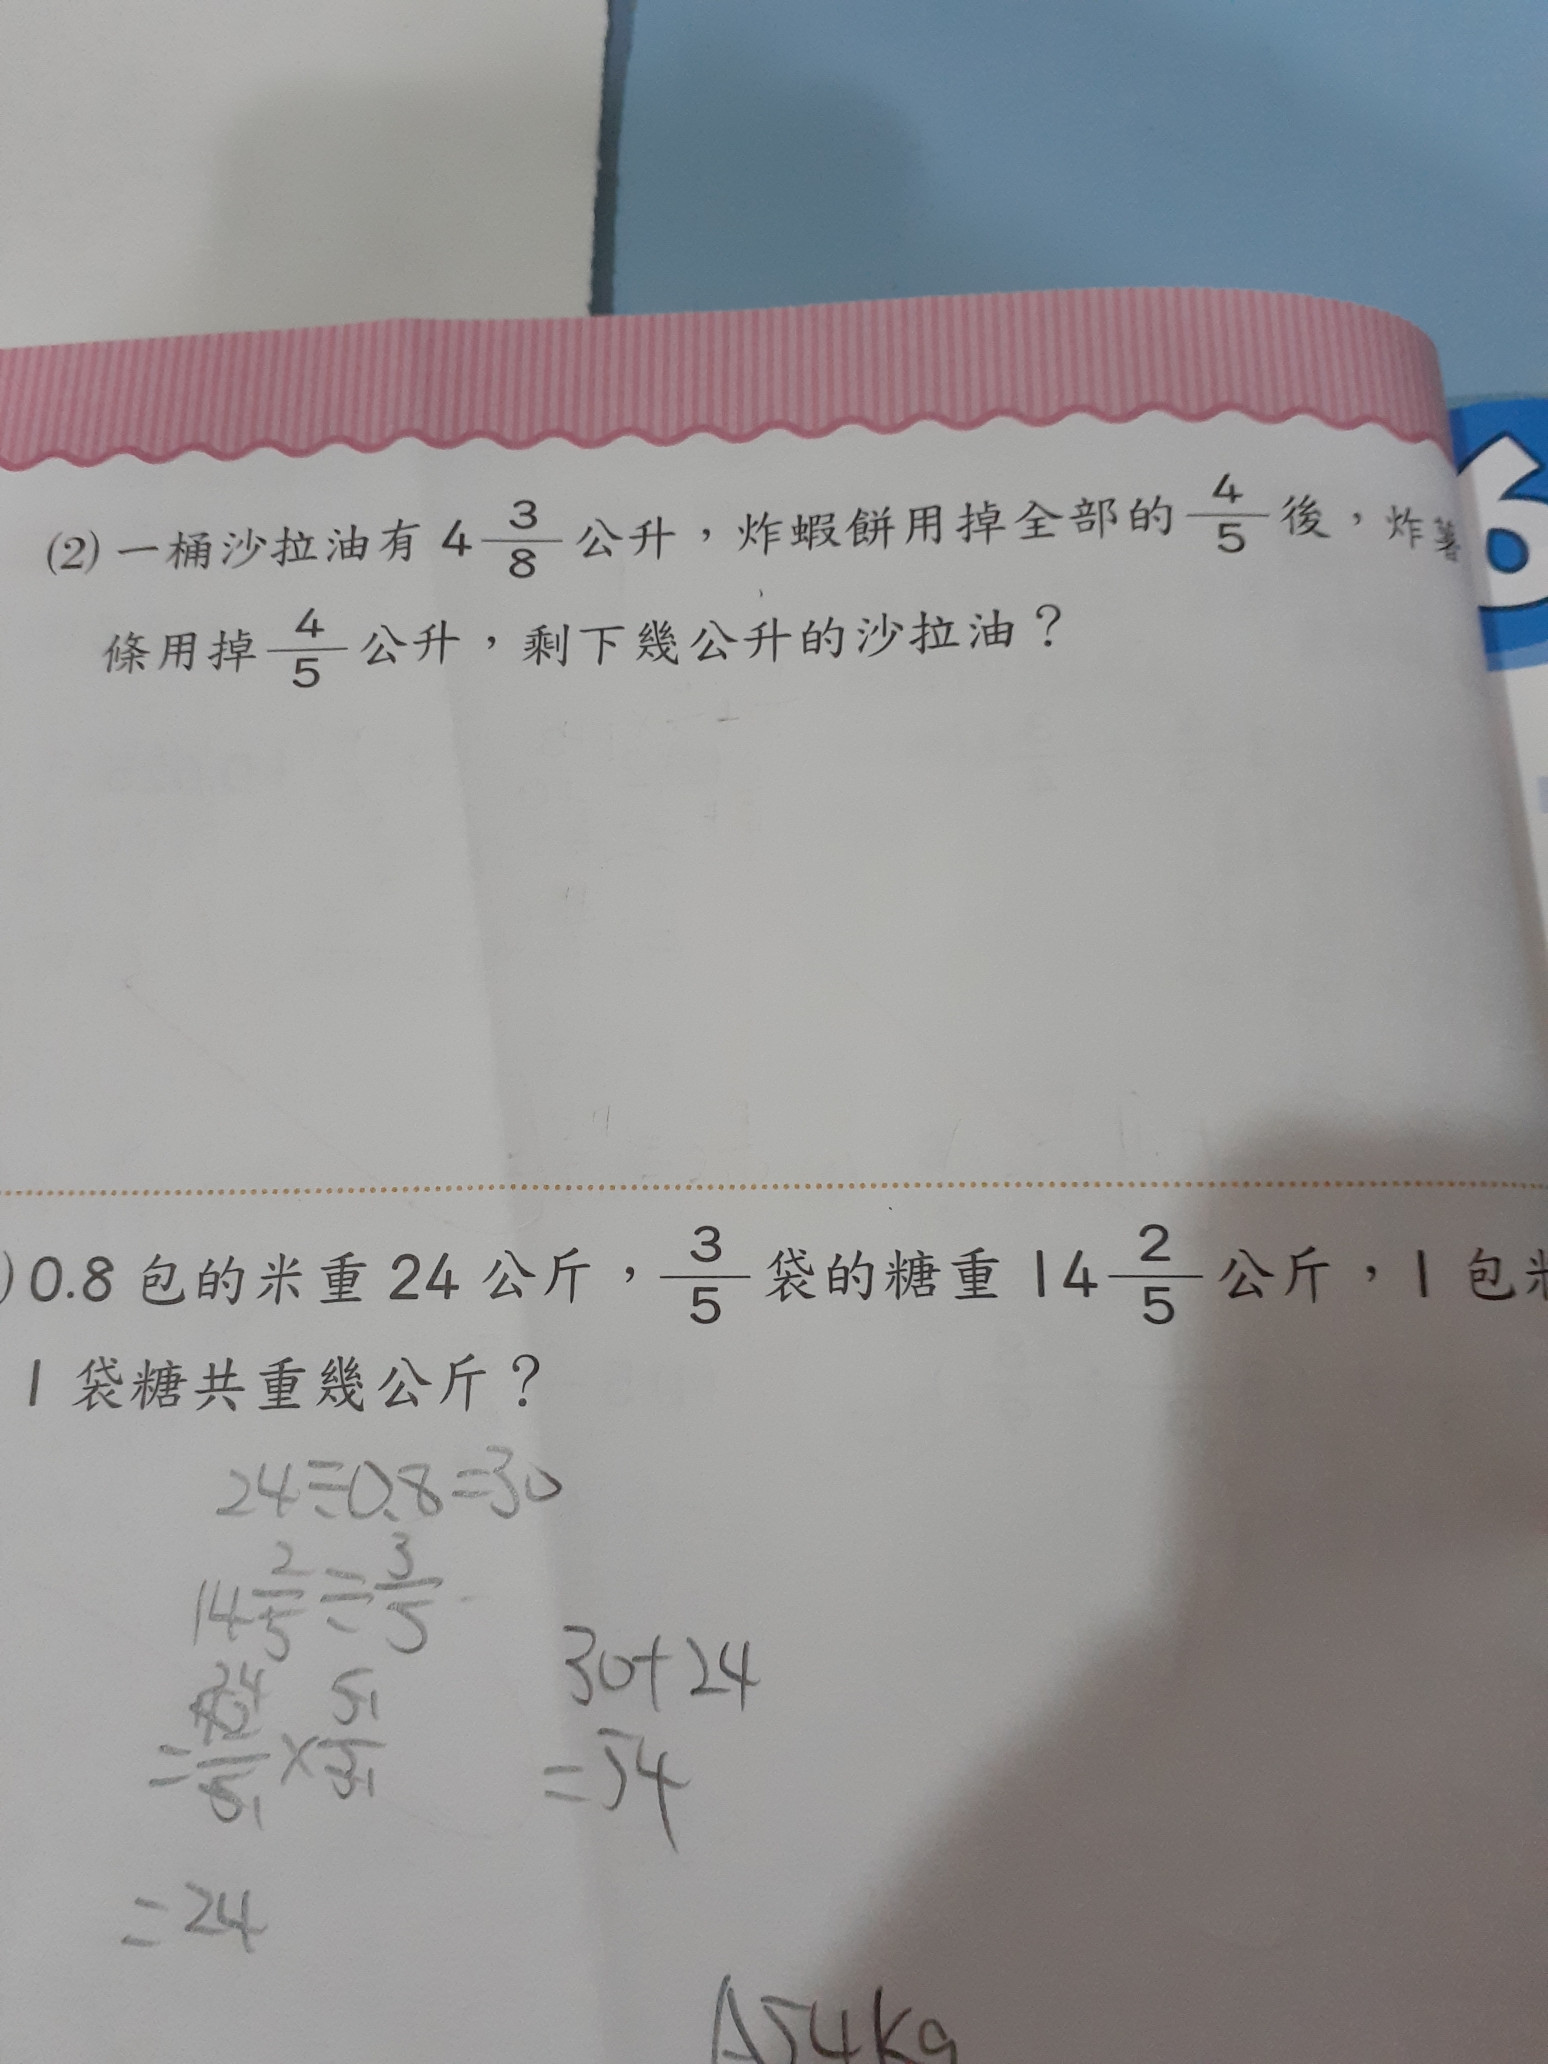 (2) 一桶沙拉油有 4 3/8 公升，炸蝦餅用掉全部的 4/5 後，炸薯
條用掉 4/5 公升，剩下幾公升的沙拉油？
6
) 0.8 包的米重 24 公斤，3/5 袋的糖重 14 2/5 公斤，1 包
1 袋糖共重幾公斤？
24÷0.8=30
14 2/5 ÷ 3/5
30+24
=54
=24
A54kg